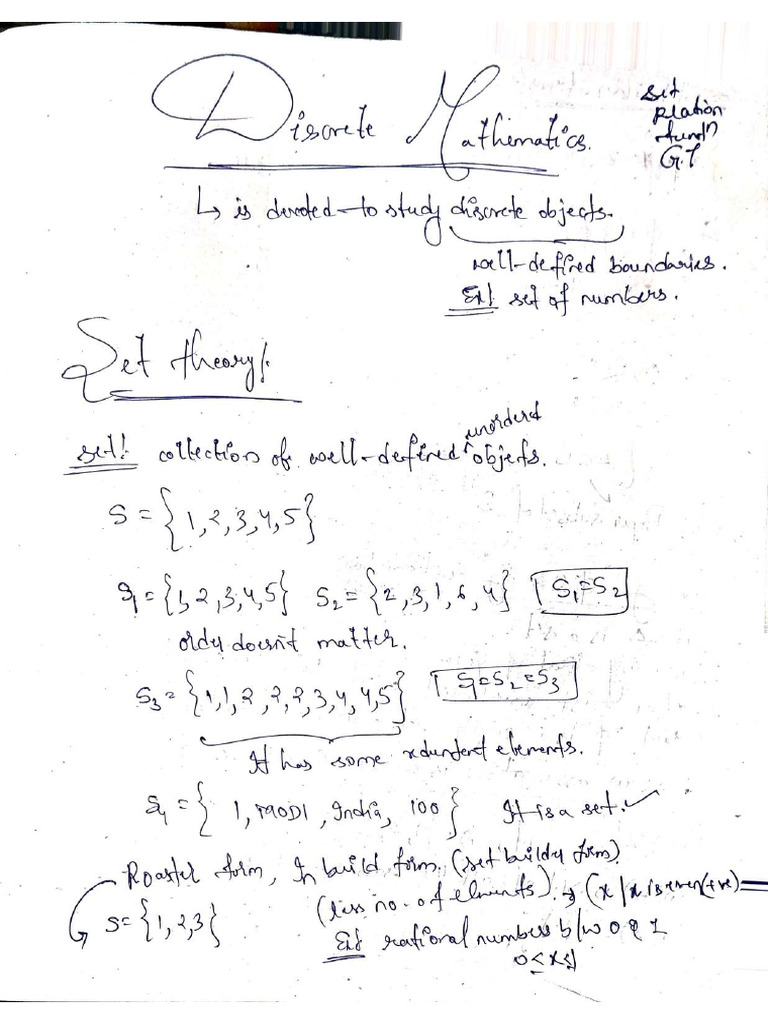 Discrete Mathematics.
set
relation
funcⁿ
G.T
↳ is devoted to study discrete objects.
well-defined boundaries.
Ex! set of numbers.
Set theory!
set! collection of well-defined unordered objects.
S = {1,2,3,4,5}
S₁ = {1,2,3,4,5} S₂ = {2,3,1,5,4} S₁=S₂
order doesn't matter.
S₃ = {1,1,2,2,2,3,4,4,5} S₁=S₂=S₃
It has some redundent elements.
S₄ = {1, MODI, India, 100} It is a set. ✓
Roaster form, In build form. (set buildy form)
S = {1,2,3} (less no. of elements). → (x/x is even(+ve)
Ex! rational numbers b/w 0 & 1
0≤x≤1